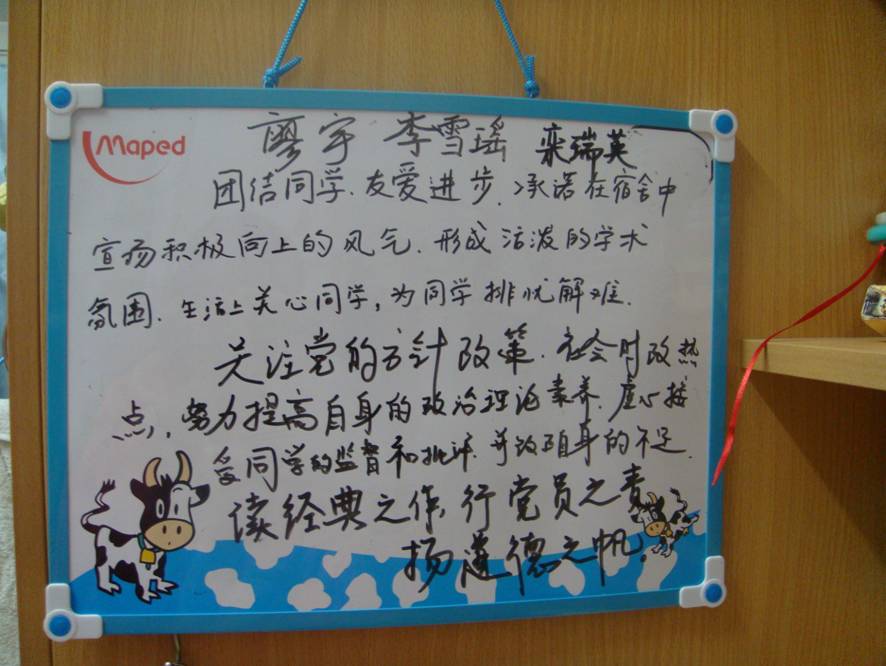 Maped
廖宇 李雪瑶 栾瑞英
团结同学、友爱进步、承诺在宿舍中
宣扬积极向上的风气、形成活泼的学术
氛围、生活上关心同学，为同学排忧解难.
关注党的方针政策、社会时政热
点，努力提高自身的政治理论素养、虚心接
受同学的监督和批评、并改正自身的不足.
读经典之作，行党员之责
扬道德之帆.